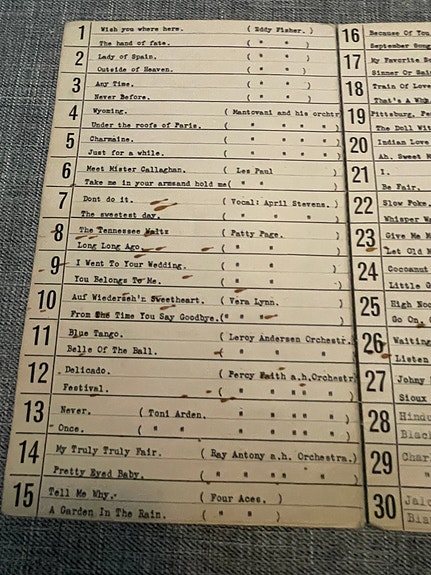 1
Wish you where here. ( Eddy Fisher. )
The hand of fate. ( " " )
2
Lady of Spain. ( " " )
Outside of Heaven. ( " " )
3
Any Time. ( " " )
Never Before. ( " " )
4
Wyoming. ( Mantovani and his orchtr
Under the roofs of Paris. ( " " " " )
5
Charmaine. ( " " " " )
Just for a while. ( " " " " )
6
Meet Mister Callaghan. ( Les Paul )
Take me in your armsand hold me( " " )
7
Dont do it. ( Vocal: April Stevens. )
The sweetest day. ( " " " )
8
The Tennessee Waltz ( Patty Page. )
Long Long Ago. ( " " )
9
I Went To Your Wedding. ( " " )
You Belongs To Me. ( " " )
10
Auf Wiederseh'n Sweetheart. ( Vera Lynn. )
From The Time You Say Goodbye.( " " )
11
Blue Tango. ( Leroy Andersen Orchestr.
Belle Of The Ball. ( " " " )
12
Delicado. ( Percy Faith a.h.Orchestr
Festival. ( " " " " " )
13
Never. ( Toni Arden. " " " " )
Once. ( " " " " " " )
14
My Truly Truly Fair. ( Ray Antony a.h. Orchestra.)
Pretty Eyed Baby. ( " " " " " )
15
Tell Me Why. ( Four Aces. )
A Garden In The Rain. ( " " )
16
Because Of You
September Song
17
My Favorite
Sinner Or
18
Train Of Love
That's A
19
Pittsburg,
The Doll
20
Indian Love
Ah. Sweet
21
I.
Be Fair.
22
Slow Poke.
Whisper
23
Give Me
Let Old
24
Cocoanut
Little
25
High Noo
Go On.
26
Waiting
Listen
27
Johny
Sioux
28
29
30